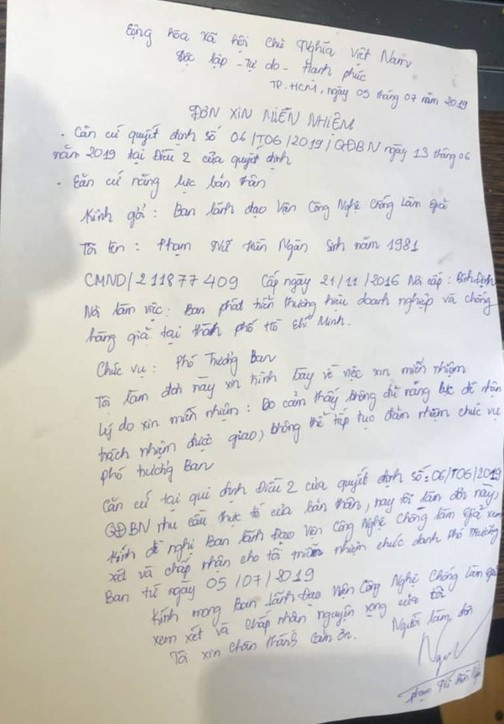 Cộng hòa xã hội Chủ Nghĩa Việt Nam
Độc lập - Tự do - Hạnh phúc
TP.HCM, ngày 05 tháng 07 năm 2019
ĐƠN XIN MIỄN NHIỆM
- Căn cứ quyết định số 06/T06/2019/QĐBN ngày 13 tháng 06
năm 2019 tại Điều 2 của quyết định
- Căn cứ năng lực bản thân
Kính gởi : Ban lãnh đạo Viện Công Nghệ Chống Làm Giả
Tôi tên : Phạm Ngân Sinh năm 1981
CMND/211877409 Cấp ngày 21/11/2016 Nơi cấp : Bình Định
Nơi làm việc : Ban phát triển thương hiệu doanh nghiệp và chống
hàng giả tại thành phố Hồ Chí Minh.
Chức vụ : Phó Trưởng Ban
Tôi làm đơn này xin trình bày về việc xin miễn nhiệm
Lý do xin miễn nhiệm : Do cảm thấy không đủ năng lực để nhận
trách nhiệm được giao, không thể tiếp tục đảm nhiệm chức vụ
Phó trưởng Ban
Căn cứ tại qui định Điều 2 của quyết định số : 06/T06/2019
QĐBN nhu cầu thực tế của bản thân, nay tôi làm đơn này,
Kính đề nghị Ban Lãnh Đạo Viện Công Nghệ Chống làm giả xem
xét và chấp nhận cho tôi miễn nhiệm chức danh Phó Trưởng
Ban từ ngày 05/07/2019
Kính mong Ban Lãnh Đạo Viện Công Nghệ Chống Làm Giả
xem xét và chấp nhận nguyện vọng của tôi
Tôi xin chân thành cảm ơn.
Người làm đơn